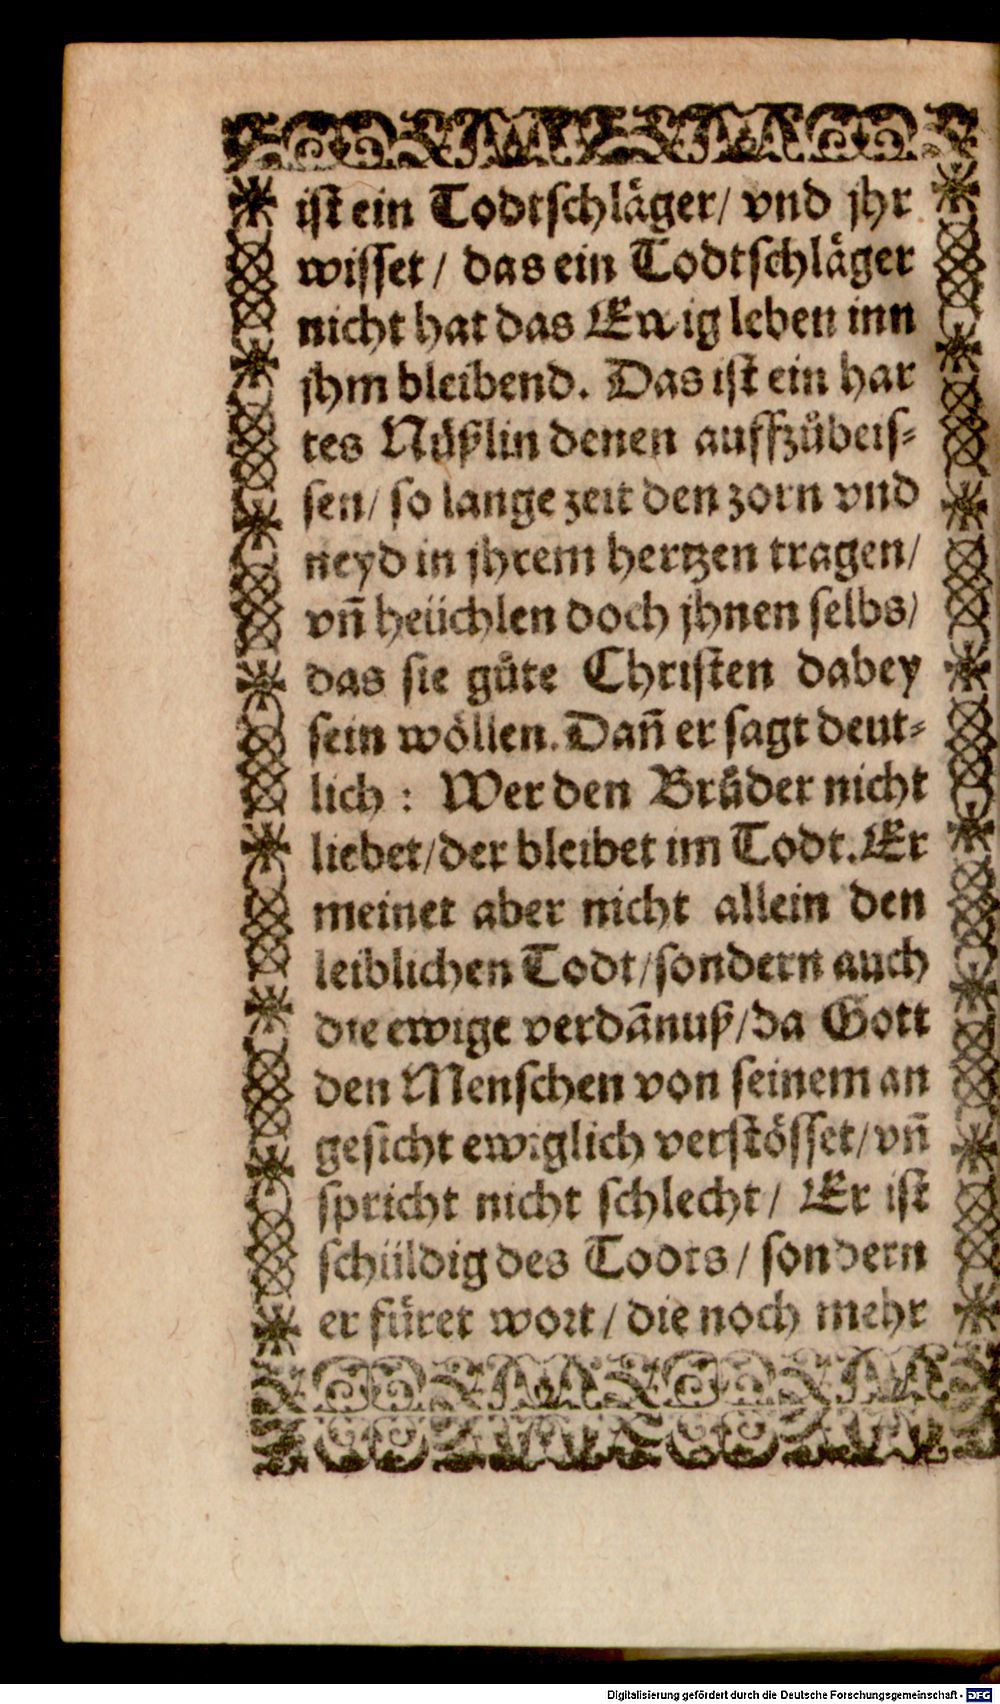 ist ein Todtschläger/ vnd jhr
wisset/ das ein Todtschläger
nicht hat das Ewig leben inn
jhm bleibend. Das ist ein har
tes Nüßlin denen auffzůbeis⸗
sen/ so lange zeit den zorn vnd
neyd in jhrem hertzen tragen/
vñ heüchlen doch jhnen selbs/
das sie gůte Christen dabey
sein wöllen. Dañ er sagt deut⸗
lich: Wer den Brůder nicht
liebet/ der bleibet im Todt. Er
meinet aber nicht allein den
leiblichen Todt/ sondern auch
die ewige verdãnuß/ da Gott
den Menschen von seinem an
gesicht ewiglich verstösset/ vñ
spricht nicht schlecht/ Er ist
schüldig des Todts/ sondern
er füret wort/ die noch mehr
Digitalisierung gefördert durch die Deutsche Forschungsgemeinschaft - DFG